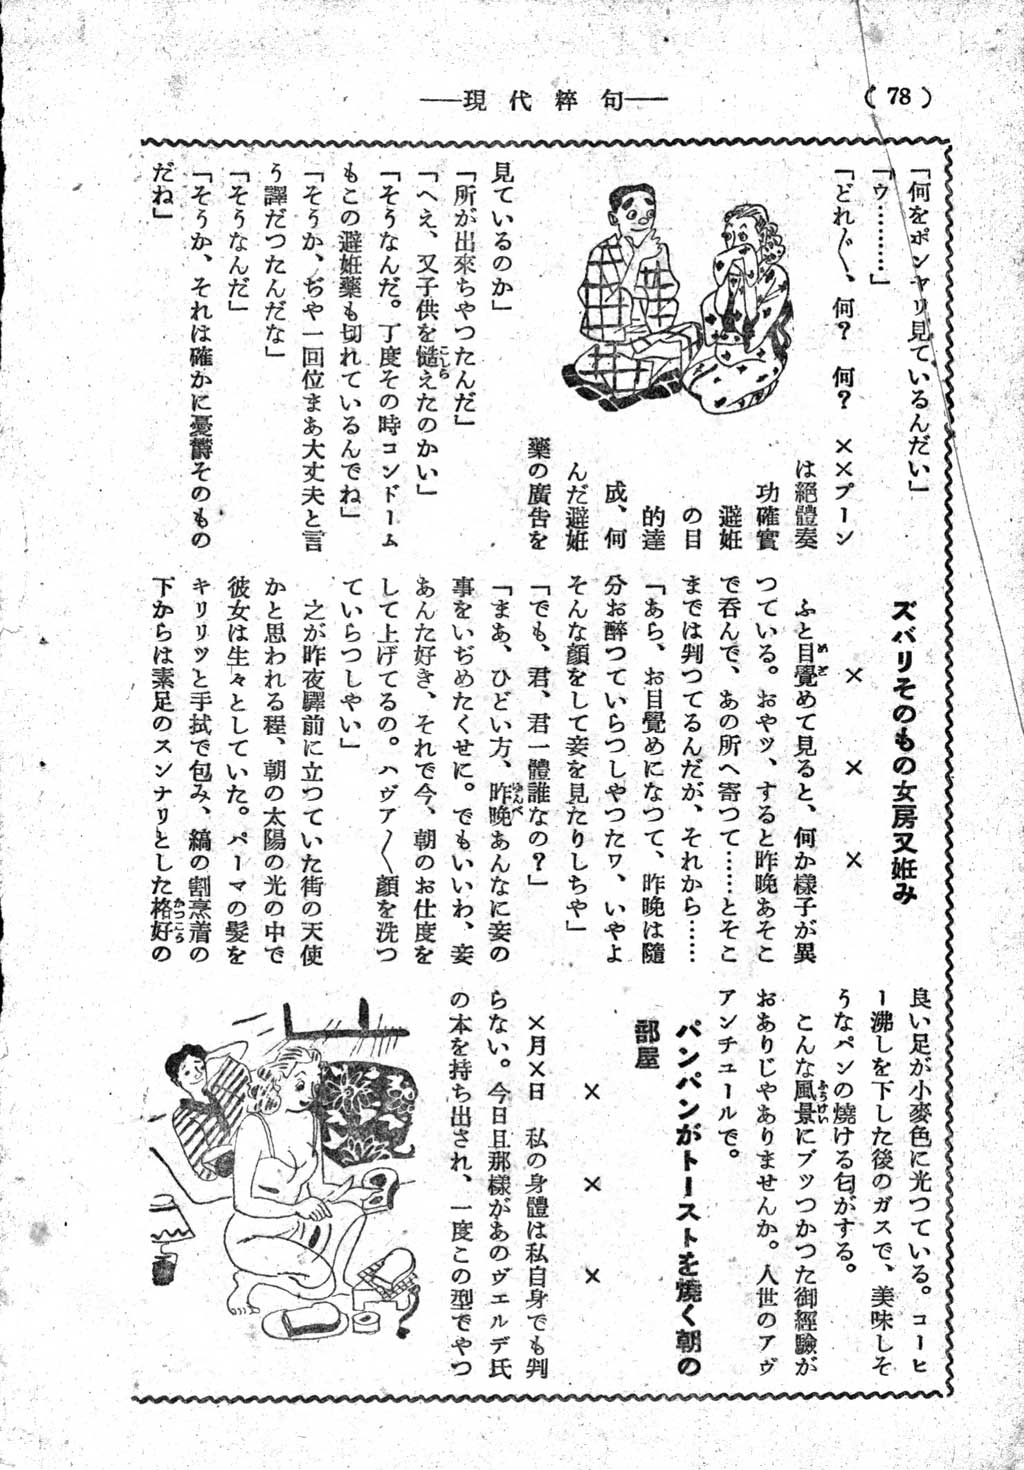 (78)
――現代粹句――
「何をボンヤリ見ているんだい」
「ウ…………」
「どれ〲、何?　何?　××プーン
は絕體奏
功確實
避姙
の目
的達
成、何
んだ避姙
藥の廣告を
見ているのか」
「所が出來ちやつたんだ」
「へえ、又子供を慥えたのかい」
こしら
「そうなんだ。丁度その時コンドーム
もこの避姙藥も切れているんでね」
「そうか、ぢや一回位まあ大丈夫と言
う譯だつたんだな」
「そうなんだ」
「そうか、それは確かに憂欝そのもの
だね」
ズバリそのもの女房又姙み
×　×　×
ふと目覺めて見ると、何か樣子が異
めざ
つている。おやッ、すると昨晩あそこ
で吞んで、あの所へ寄つて……とそこ
までは判つてるんだが、それから……
「あら、お目覺めになつて、昨晩は隨
分お醉つていらつしやつたワ、いやよ
そんな顏をして妾を見たりしちや」
「でも、君、君一體誰なの?」
「まあ、ひどい方、昨晩あんなに妾の
ゆんべ
事をいぢめたくせに。でもいいわ、妾
あんた好き、それで今、朝のお仕度を
して上げてるの。ハヴア〱顏を洗つ
ていらつしやい」
之が昨夜驛前に立つていた街の天使
かと思われる程、朝の太陽の光の中で
彼女は生々としていた。パーマの髮を
キリリッと手拭で包み、縞の割烹着の
下からは素足のスンナリとした格好の
かつこう
良い足が小麥色に光つている。コーヒ
ー沸しを下した後のガスで、美味しそ
うなパンの燒ける匂がする。
こんな風景にブッつかつた御經驗が
ふうけい
おありじやありませんか。人世のアヴ
アンチュールで。
パンパンがトーストを燒く朝の
部屋
×　×　×
×月×日　私の身體は私自身でも判
らない。今日旦那樣があのヴエルデ氏
の本を持ち出され、一度この型でやつ